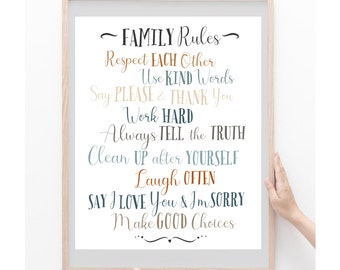 FAMILY Rules
Respect EACH Other
Use KIND Words
Say PLEASE & THANK You
Work HARD
Always TELL the TRUTH
Clean UP after YOURSELF
Laugh OFTEN
SAY I LOVE You & I'm SORRY
Make GOOD Choices